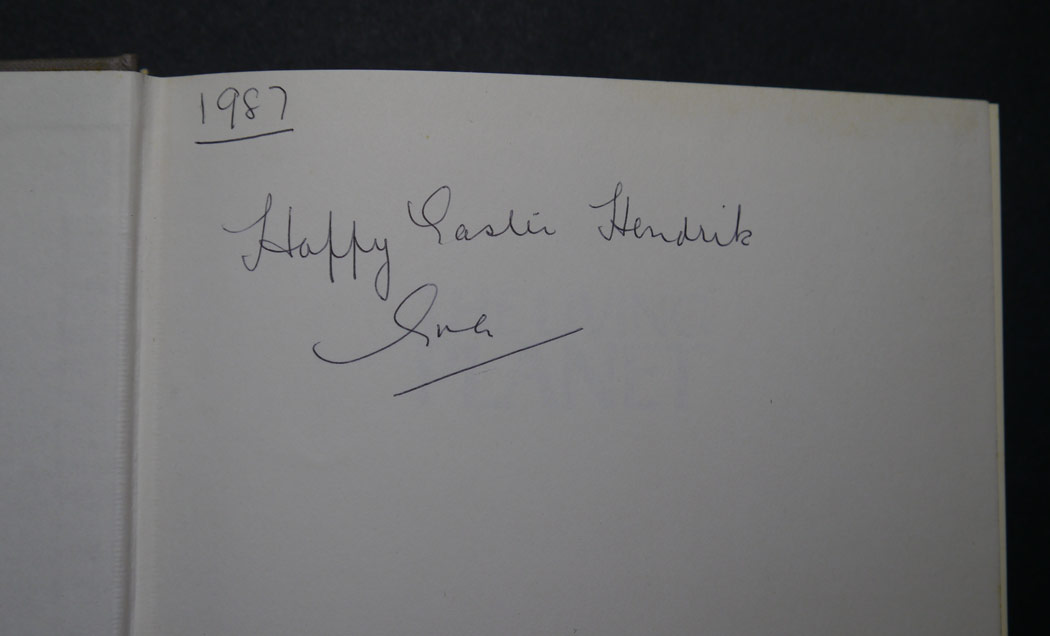 1987
Happy Easter Hendrik